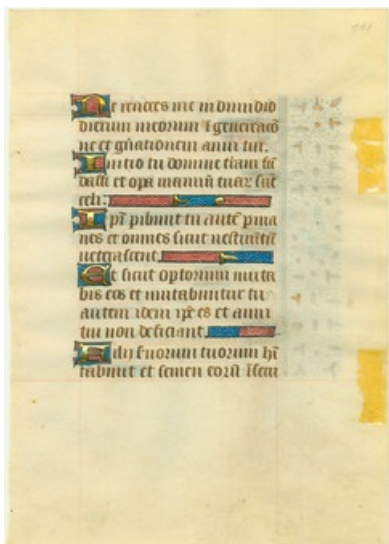 Ne reuoces me in dimidio
dierum meorum ī generacō
ne et gn̄ationem anni tui.
Initio tu domine t̄iam fū
dasti et op̄a manuū tuar̄ sūt
celi.
Ip̄i p̄ibunt tu autē p̄ma
nes et omnes sicut uestimētū
ueterascent.
Et sicut optorium muta
bis eos et mutabuntur tu
autem idem ip̄e es et anni
tui non deficiant.
Filij s̄uorum tuorum hī
tabunt et semen eor̄ū ī seculum